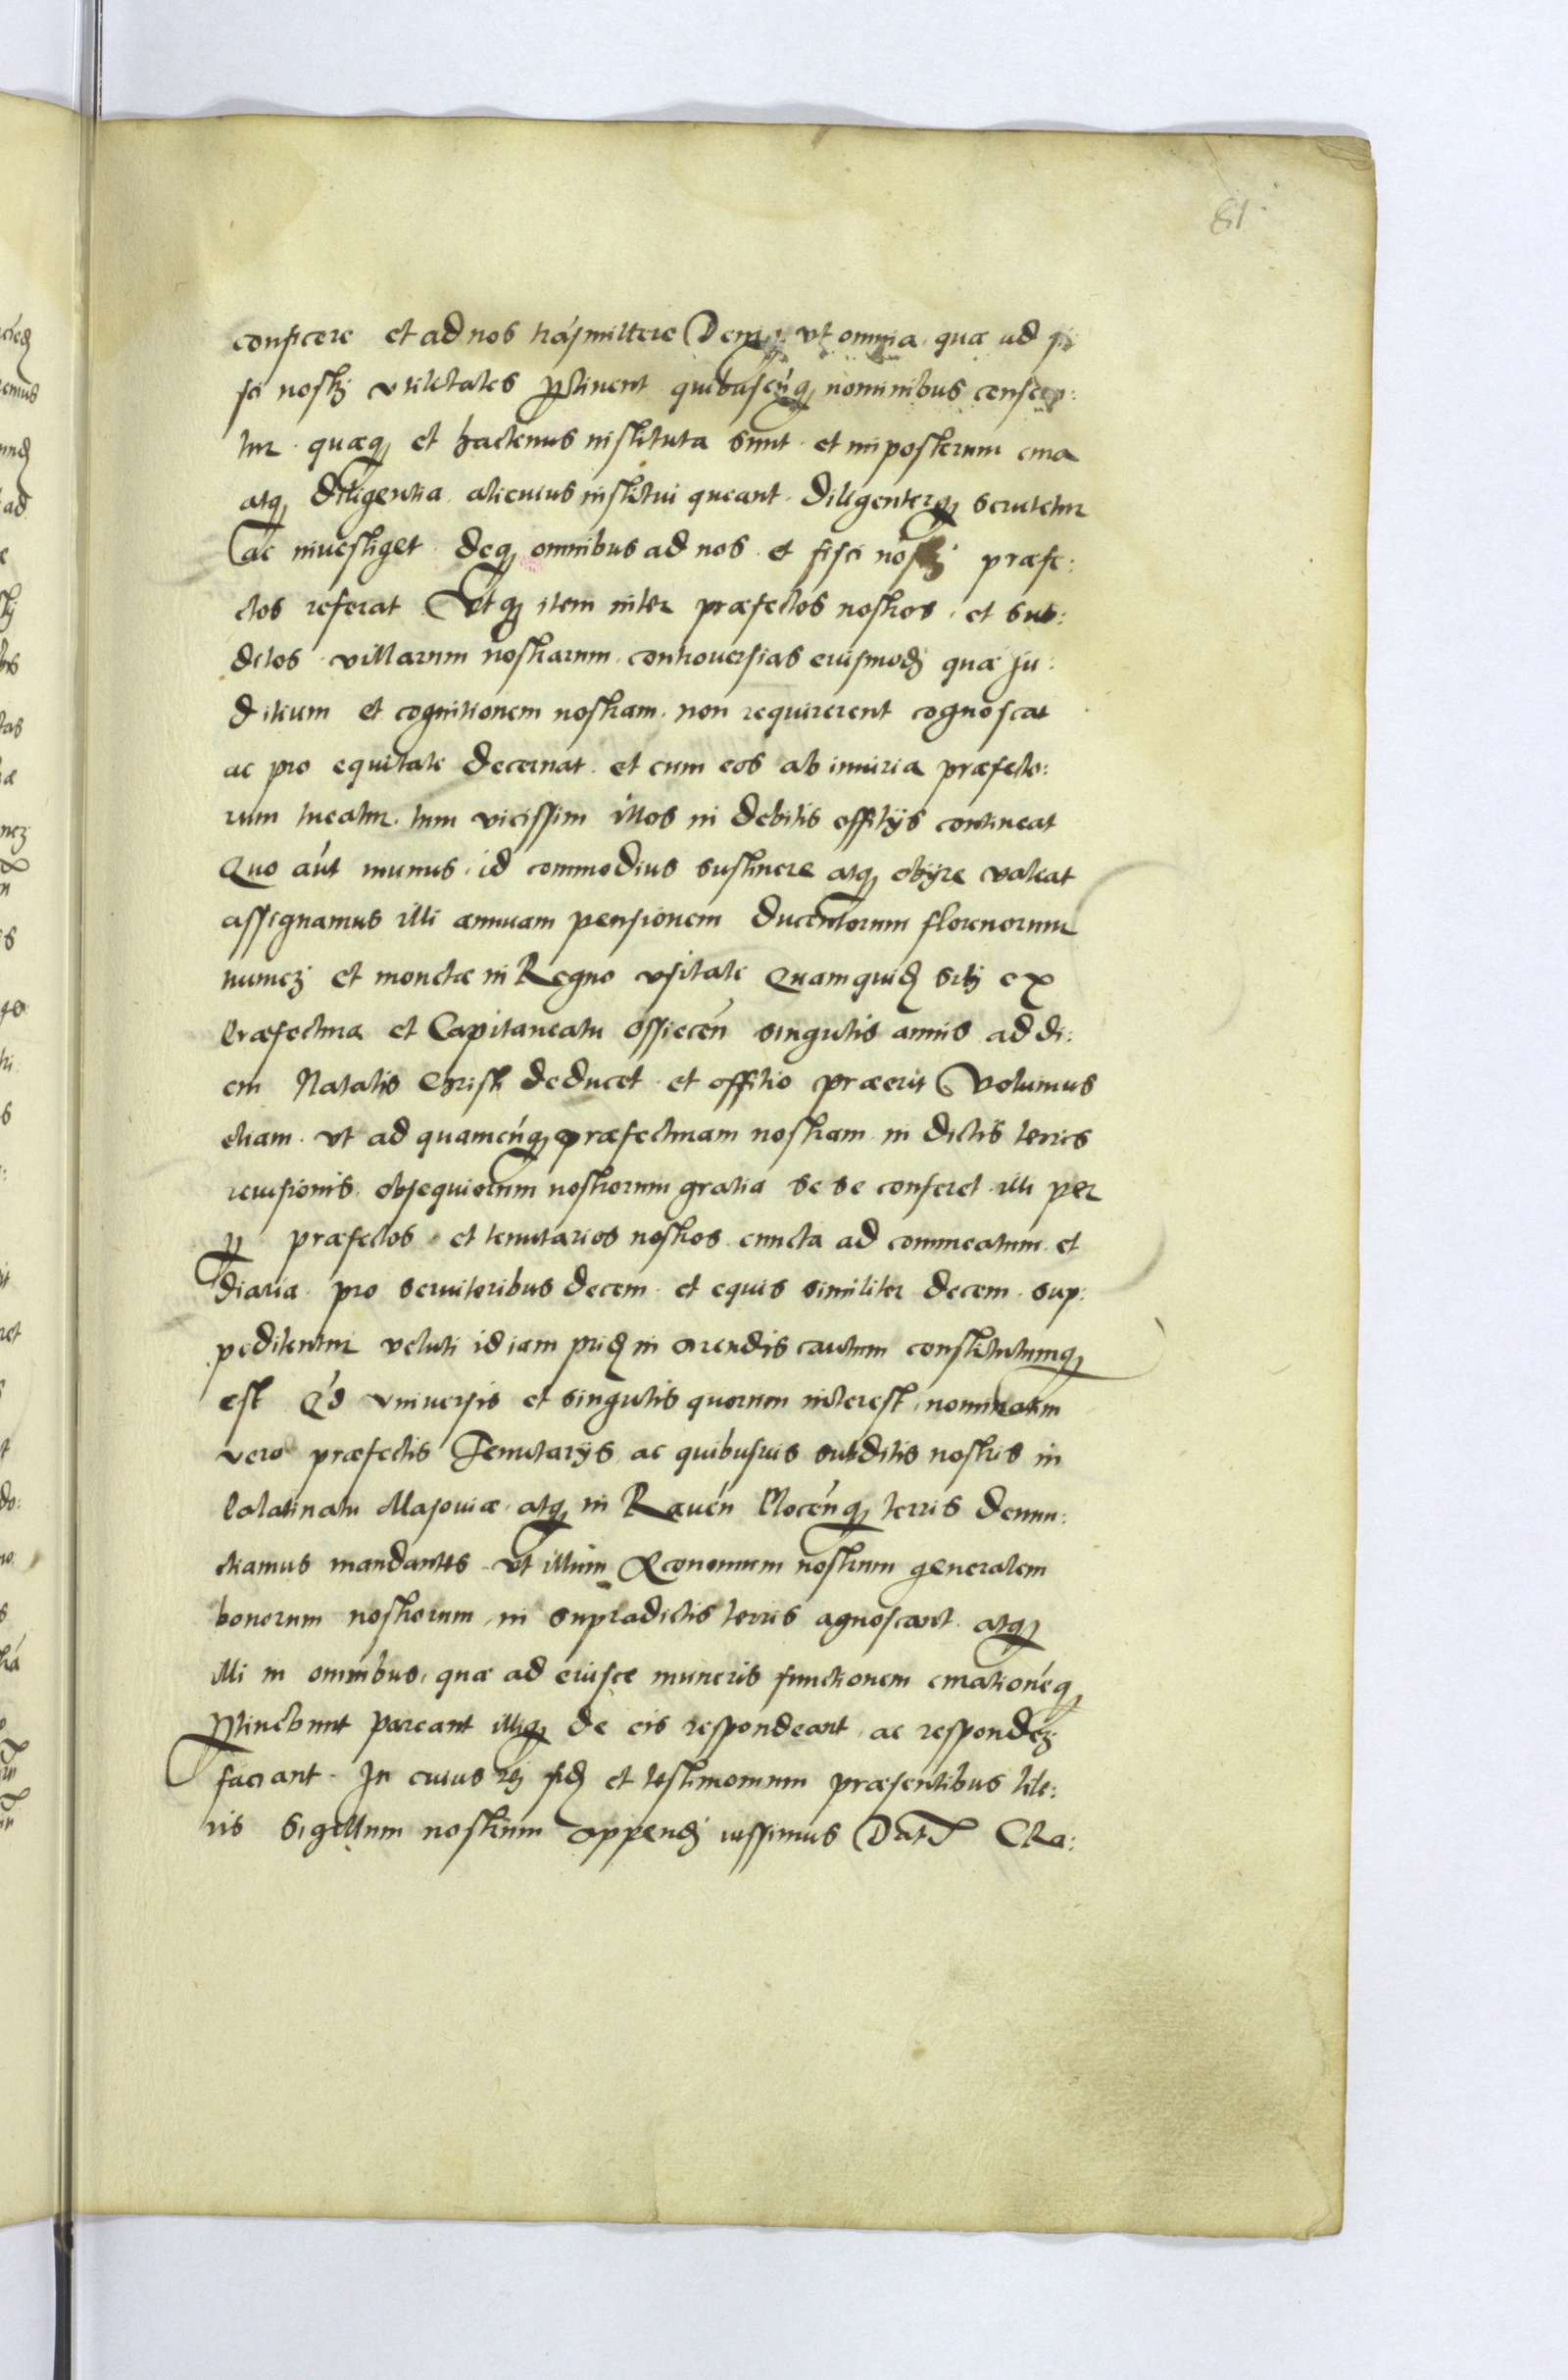 81
conficere et ad nos trásmittere Deniq ut omnia quæ ad fi
sci nostrj utilitates ptinent quibuscúq nominibus censean:
tur quæq et hactenus instituta sunt et in posterum cura
atq diligentia alicuius institui queant diligenterq scrutetur
ac investiget deq omnibus ad nos et fisci nostrj præfe:
ctos referat Vtq item inter præfectos nostros et sub:
ditos villarum nostrarum controversias eiusmodj quæ ju:
ditium et cognitionem nostram non requirerent cognoscat
ac pro equitate decernat et cum eos ab iniuria præfecto:
rum tueatur tum vicissim illos in debitis offitijs contineat
Quo aút munus id commodius sustinere atq obijre valeat
assignamus illi annuam pensionem ducentorum florenorum
numerj et monetæ in Regno usitate Quam quidē sibj ex
Præfectura et Capitaneatu Ossiecén singulis annis ad di:
em Natalis Christi deducet et offitio præerit Volumus
etiam ut ad quamcúq præfecturam nostram in dictis terris
revisionis obsequiorum nostrorum gratia se se conferet illi per
p præfectos et tenutarios nostros cuncta ad commeatum et
diaria pro servitoribus decem et equis similiter decem sup:
peditentur veluti id iam pridē in arendis cautum constitutumq
est Qd universis et singulis quorum interest nominatim
vero præfectis Tenutarijs ac quibusvis subditis nostris in
Palatinatu Masoviæ atq in Ravén Plocénq terris denun:
ciamus mandantes ut illum Œconomum nostrum generalem
bonorum nostrorum in supradictis terris agnoscant atq
illi in omnibus quæ ad eiusce muneris functionem curationéq
ptinebunt pareant illiq de eis respondeant ac responderj
faciant In cuius rej fidē et testimonium præsentibus lite:
ris Sigillum nostrum appendj iussimus Dat CRa: